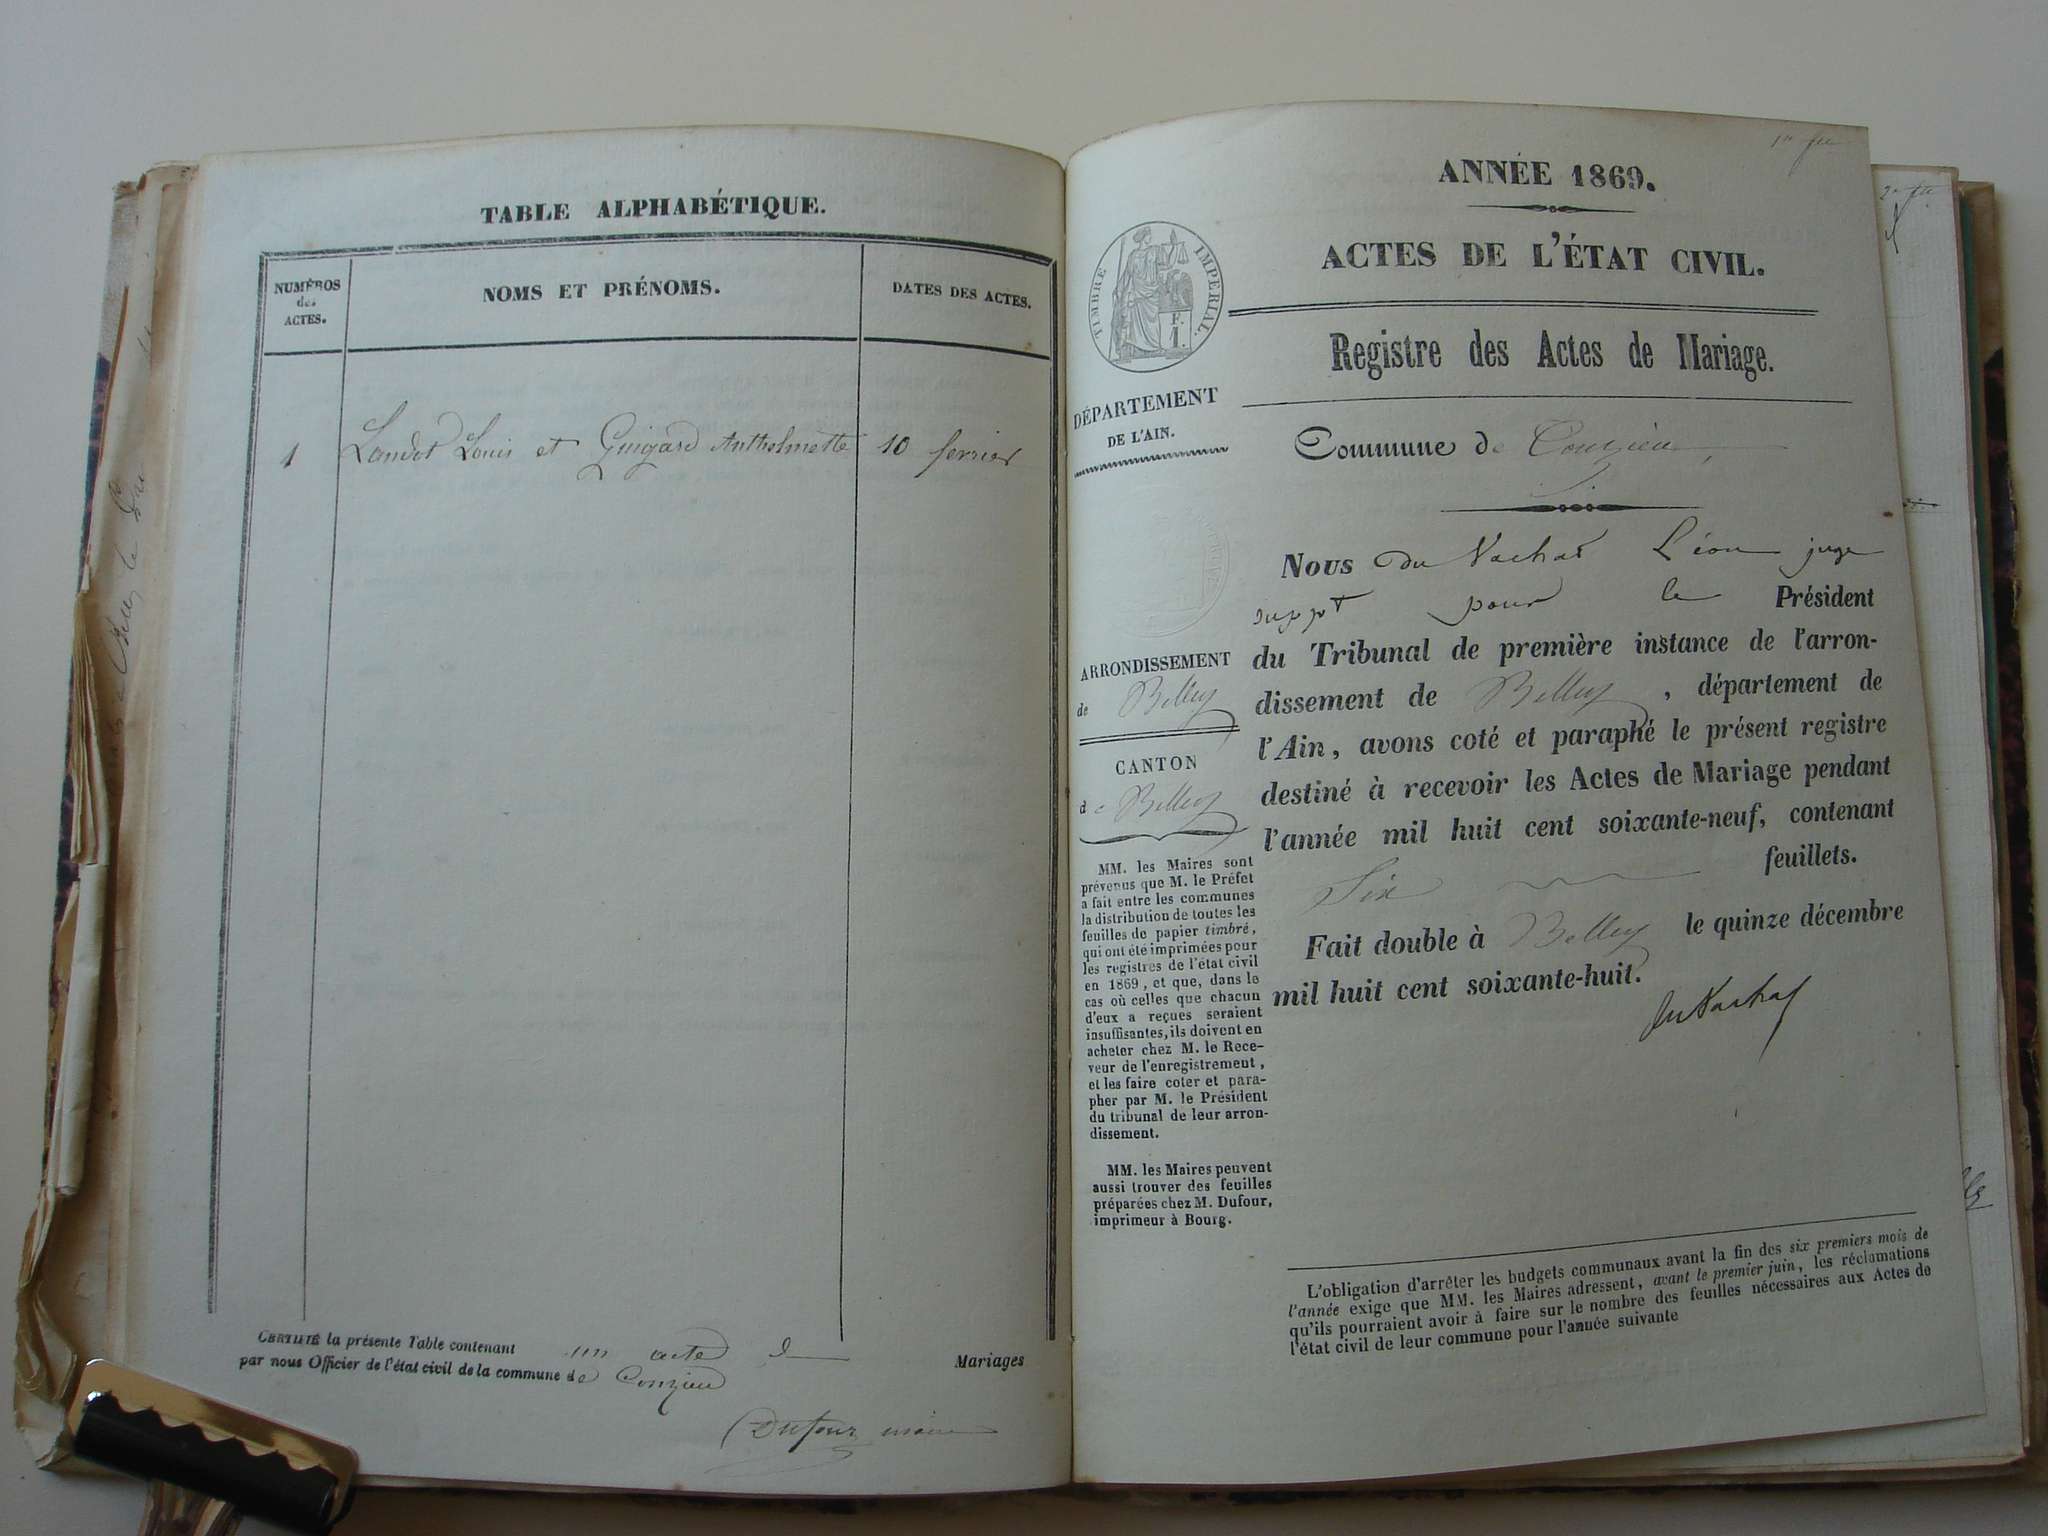 TABLE ALPHABÉTIQUE.
NUMÉROS
des
ACTES.
NOMS ET PRÉNOMS.
DATES DES ACTES.
1 Landot Louis et Guigard Anthelmette 10 fevrier
CERTIFIÉ la présente Table contenant un acte de Mariages
par nous Officier de l'état civil de la commune de Conzieu
Dufour maire
1er fet
ANNÉE 1869.
ACTES DE L'ÉTAT CIVIL.
TIMBRE IMPÉRIAL.
F.
1.
Registre des Actes de Mariage.
DÉPARTEMENT
DE L'AIN.
Commune de Conzieu
Nous du Vachat Léon juge
suppt pour le Président
du Tribunal de première instance de l'arron-
dissement de Belley, département de
l'Ain, avons coté et paraphé le présent registre
destiné à recevoir les Actes de Mariage pendant
l'année mil huit cent soixante-neuf, contenant
Six feuillets.
Fait double à Belley le quinze décembre
mil huit cent soixante-huit.
du Vachat
ARRONDISSEMENT
de Belley
CANTON
de Belley
MM. les Maires sont
prévenus que M. le Préfet
a fait entre les communes
la distribution de toutes les
feuilles de papier timbré,
qui ont été imprimées pour
les registres de l'état civil
en 1869, et que, dans le
cas où celles que chacun
d'eux a reçues seraient
insuffisantes, ils doivent en
acheter chez M. le Rece-
veur de l'enregistrement,
et les faire coter et para-
pher par M. le Président
du tribunal de leur arron-
dissement.
MM. les Maires peuvent
aussi trouver des feuilles
préparées chez M. Dufour,
imprimeur à Bourg.
L'obligation d'arrêter les budgets communaux avant la fin des six premiers mois de
l'année exige que MM. les Maires adressent, avant le premier juin, les réclamations
qu'ils pourraient avoir à faire sur le nombre des feuilles nécessaires aux Actes de
l'état civil de leur commune pour l'année suivante